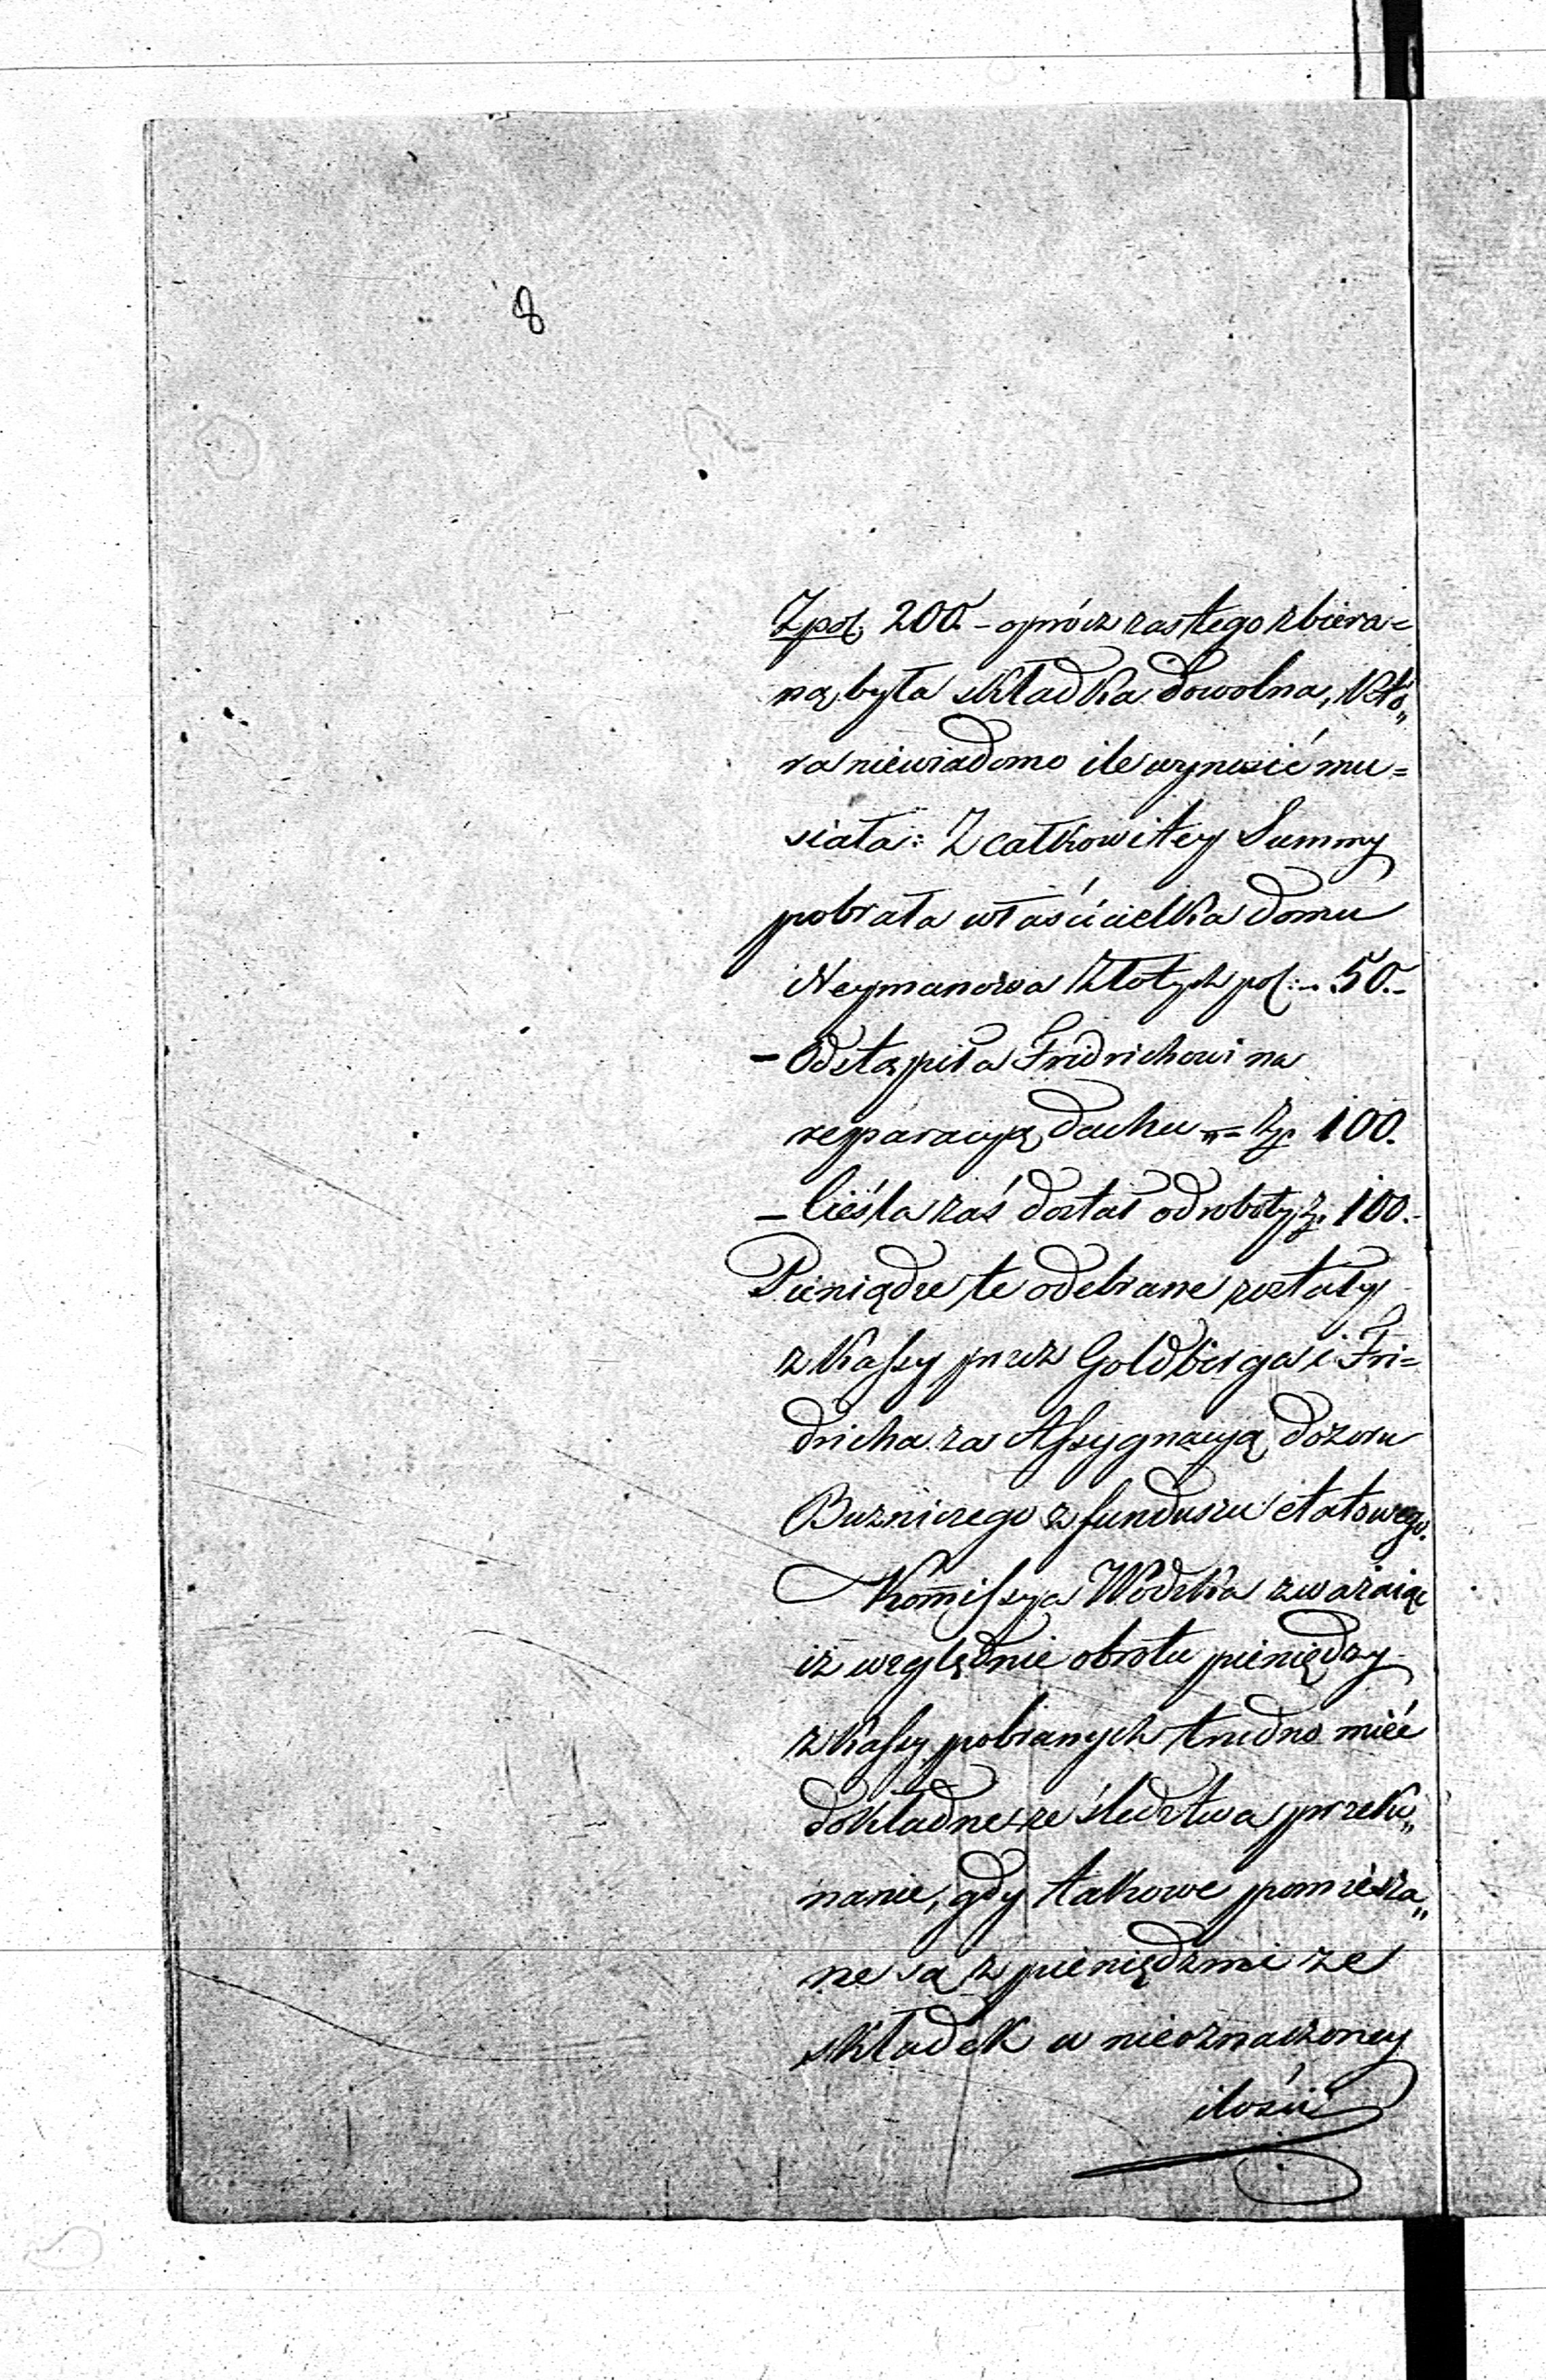 8
Zpol. 200.- oprócz zas tego zbiera=
ną była składka dowolna, któ„
ra niewiadomo ile wynosić mu=
siała: Z całkowitey Summy
pobrała właścicielka domu
Neymanowa Złotych pol:- 50.-
- Odstąpiła Fridrichowi na
reparacyą dachu „= Zp. 100.
- Cieśla zaś dostał od roboty Zp. 100.-
Pieniądze te odebrane zostały
z Kassy przez Goldberga i Fri=
dricha za Assygnacyą dozoru
Bużniczego z funduszu etatowego.
Kom̄issya Wodzka zważaiąc
iż względnie obrotu pieniędzy
z Kassy pobranych trudno mieć
dokładne ze śledztwa przeko„
nanie, gdy takowe pomiesza„
ne są z pieniędzmi ze
składek w nieoznaczoney
ilości